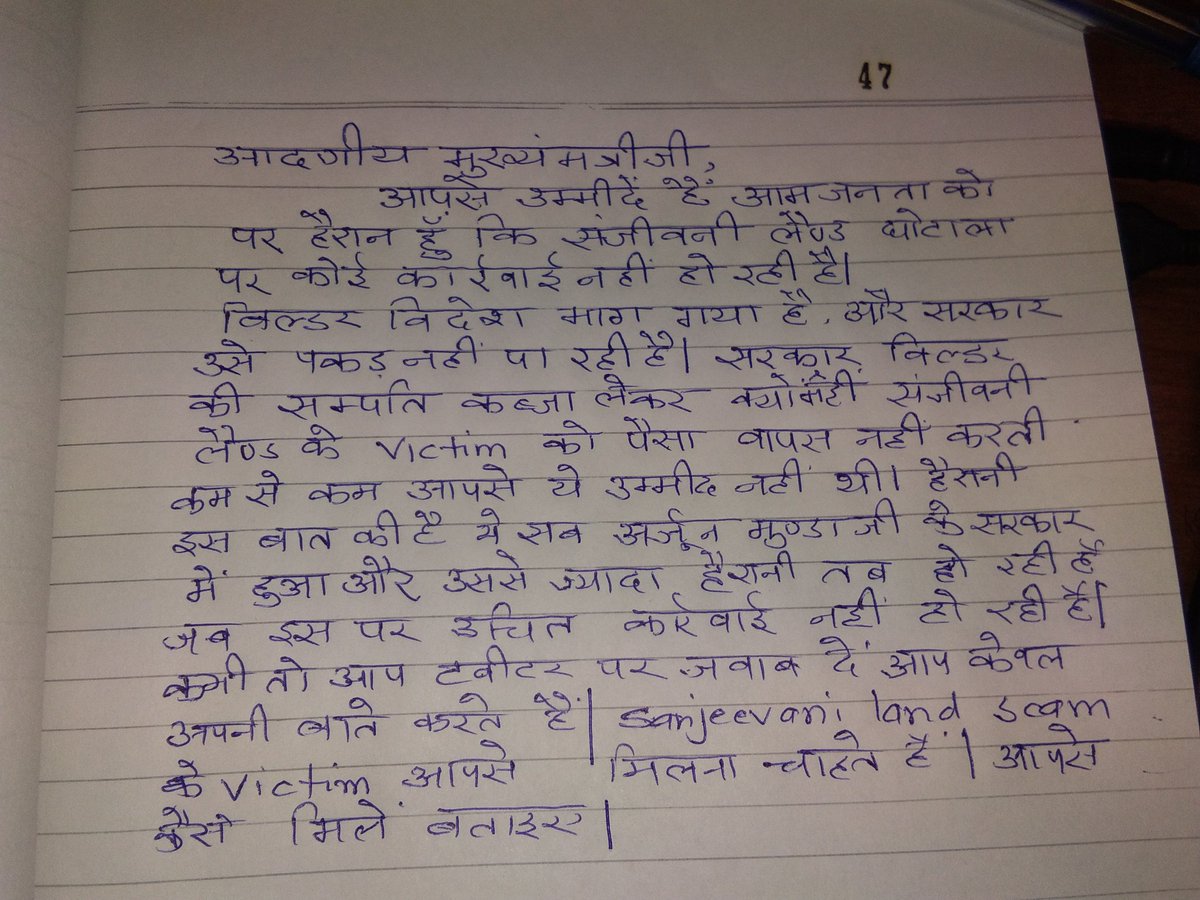 47
आदणीय मुख्यंमत्रीजी,
आपसे उम्मीदें हैं आम जनता को
पर हैरान हूँ कि संजीवनी लैण्ड घोटाला
पर कोई कार्रवाई नहीं हो रही है।
बिल्डर विदेश भाग गया है, और सरकार
उसे पकड़ नहीं पा रही है। सरकार बिल्डर
की सम्पति कब्जा लेकर क्यों नहीं संजीवनी
लैण्ड के victim को पैसा वापस नहीं करती
कम से कम आपसे ये उम्मीद नहीं थी। हैरानी
इस बात की है ये सब अर्जून मुण्डा जी के सरकार
में हुआ और उससे ज्यादा हैरानी तब हो रही है
जब इस पर उचित कार्रवाई नहीं हो रही है।
कभी तो आप टवीटर पर जवाब दें आप केवल
अपनी बाते करते हैं। Sanjeevani land scam
के victim आपसे मिलना चाहते हैं। आपसे
कैसे मिलें बताइए।